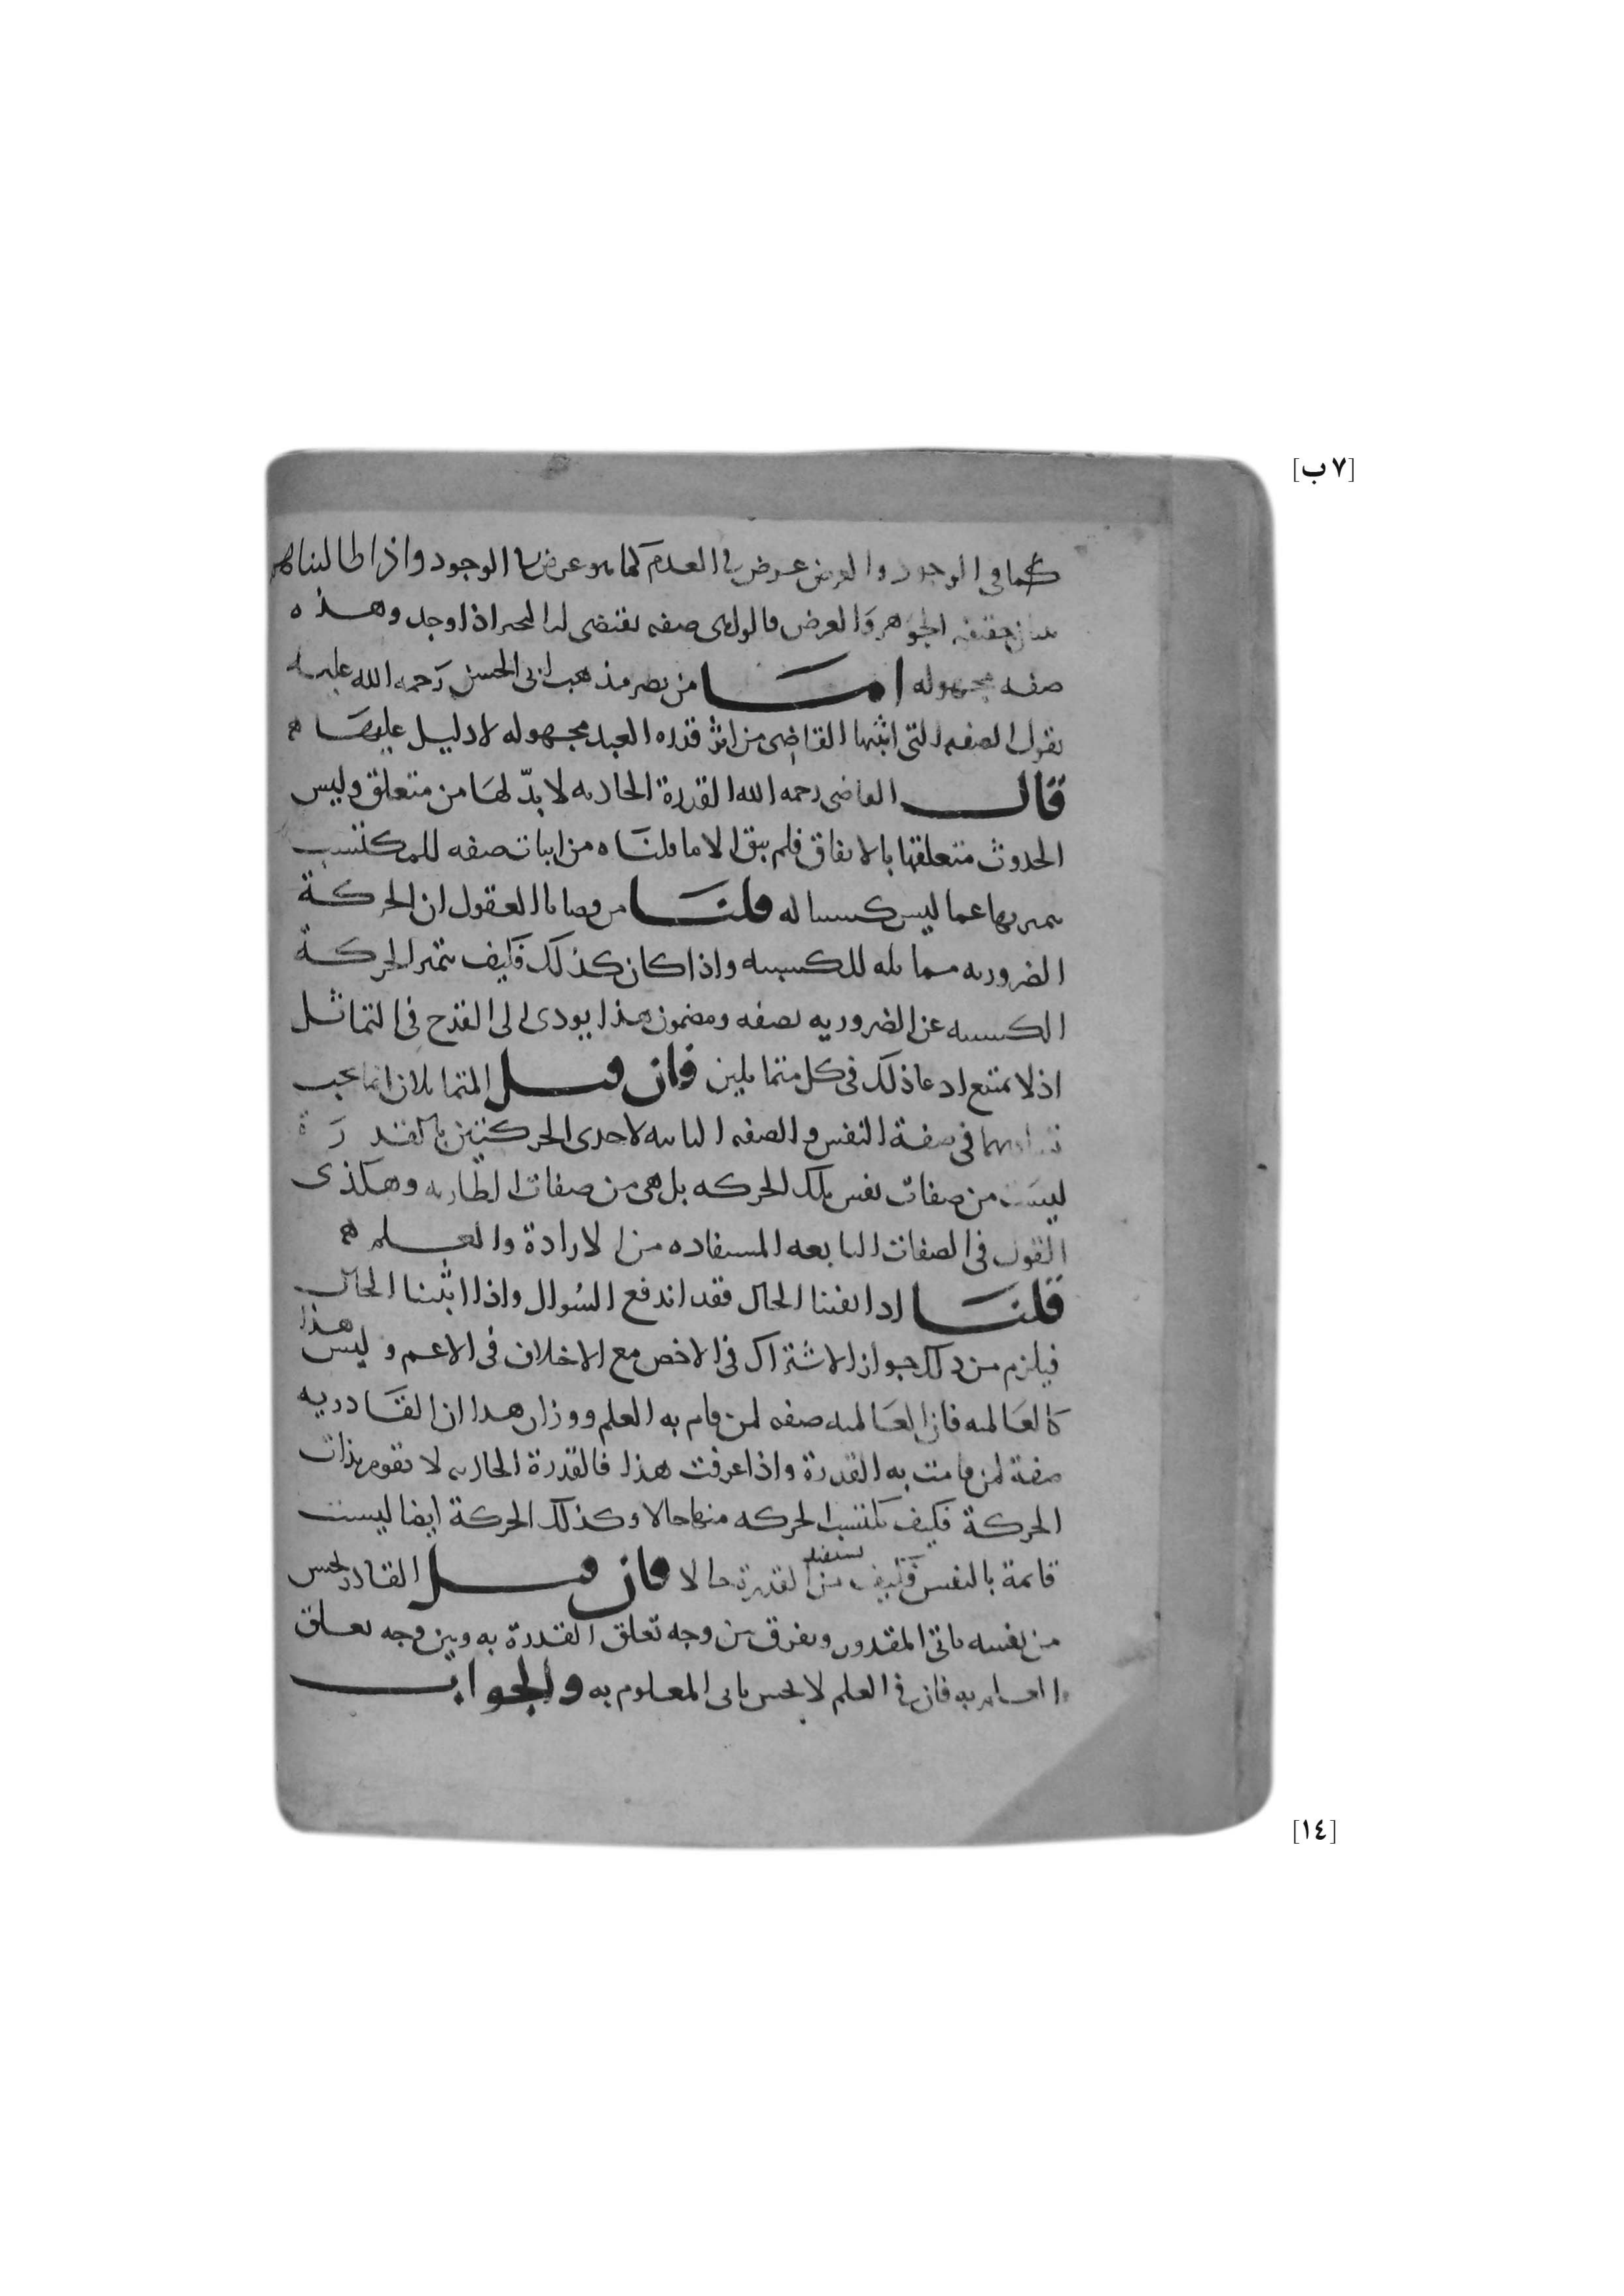 [٧ ب]
كما في الوجود والعرض عرض في العدم كما هو عرض في الوجود واذا طالبناهم
ببيان حقيقه الجوهر والعرض قالوا هي صفه تقتضي له التحيز اذا وجد وهذه
صفه مجهوله امَّا من نصر مذهب ابي الحسن رحمه الله عليه
يقول الصفه التي اثبتها القاضي من اثر قدره العبد مجهوله لا دليل عليها ه
قال القاضي رحمه الله القدرة الحادثه لا بدّ لها من متعلق وليس
الحدوث متعلقها بالاتفاق فلم يبق الا ما قلناه من اثبات صفه للمكتسب
يتميز بها عما ليس كسبا له قلنا من قضايا العقول ان الحركة
الضروريه مماثله للكسبيه واذا كان كذلك فكيف تتميز الحركة
الكسبيه عن الضروريه بصفه ومضمون هذا يودي الى القدح في التماثل
اذ لا يمتنع ادعا ذلك في كل متماثلين فان قيل المتماثلان انما يجب
تساويهما في صفة النفس والصفه الثابته لاحدى الحركتين بالقدرة
ليست من صفات نفس تلك الحركه بل هي من صفات الطاريه وهكذى
القول في الصفات التابعه المستفاده من الارادة والعلم ه
قلنا اذا نفينا الحال فقد اندفع السُوال واذا اثبتنا الحال
فيلزم من ذلك جواز الاشتراك في الاخص مع الاختلاف في الاعم وليس هذا
كالعالميه فان العالميه صفه لمن قام به العلم ووزان هذا ان القادريه
صفة لمن قامت به القدرة واذا عرفت هذا فالقدرة الحادثه لا تقوم بذات
الحركة فكيف تكتسب الحركه منها حالا وكذلك الحركة ايضا ليست
قائمة بالنفس فكيف تستفيد من القدرة حالا فان قيل القادر يحس
من نفسه تاتي المقدور ويفرق بين وجه تعلق القدرة به وبين وجه تعلق
العلم به فان في العلم لا يحس تاتي المعلوم به والجواب
[١٤]